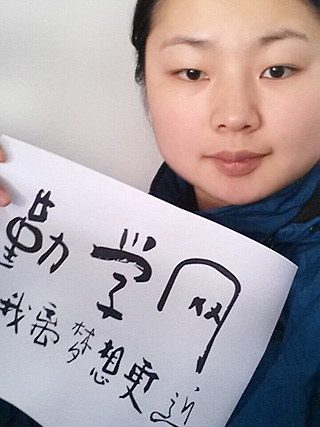 勤学网
我离梦想更近